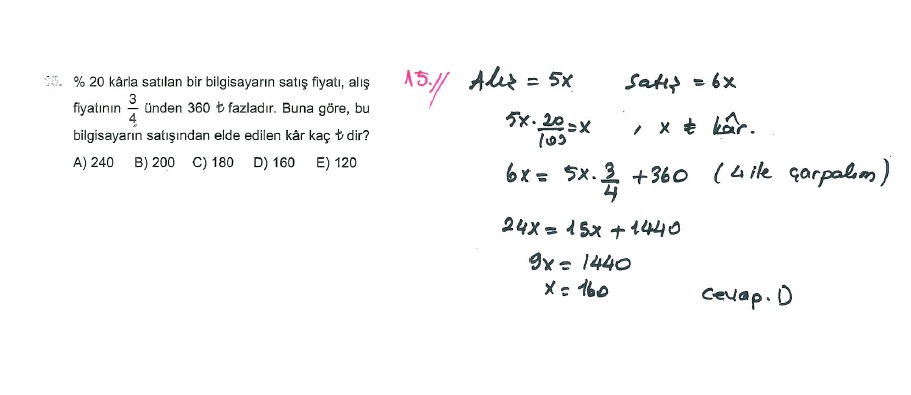 15. % 20 kârla satılan bir bilgisayarın satış fiyatı, alış
fiyatının 3/4 ünden 360 ₺ fazladır. Buna göre, bu
bilgisayarın satışından elde edilen kâr kaç ₺ dir?
A) 240 B) 200 C) 180 D) 160 E) 120
15.// Alış = 5x Satış = 6x
5x · 20/100 = x , x ₺ kâr.
6x = 5x · 3/4 + 360 (4 ile çarpalım)
24x = 15x + 1440
9x = 1440
x = 160
Cevap. D